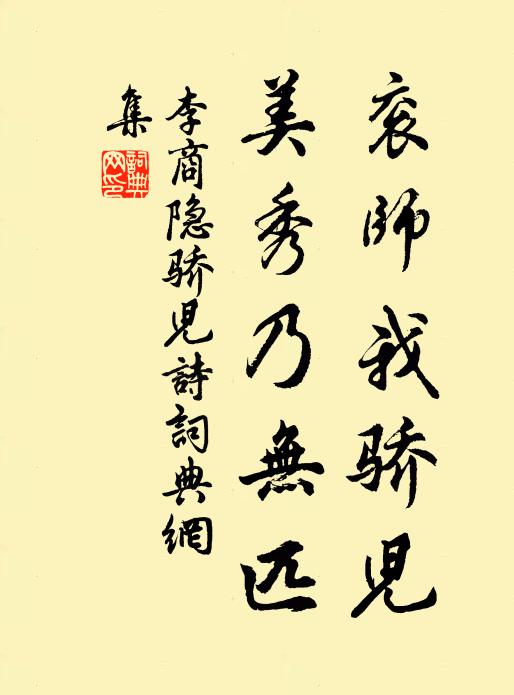 衮師我骄兒
美秀乃無匹
李商隐骄兒詩詞典網
集
詞典
网印